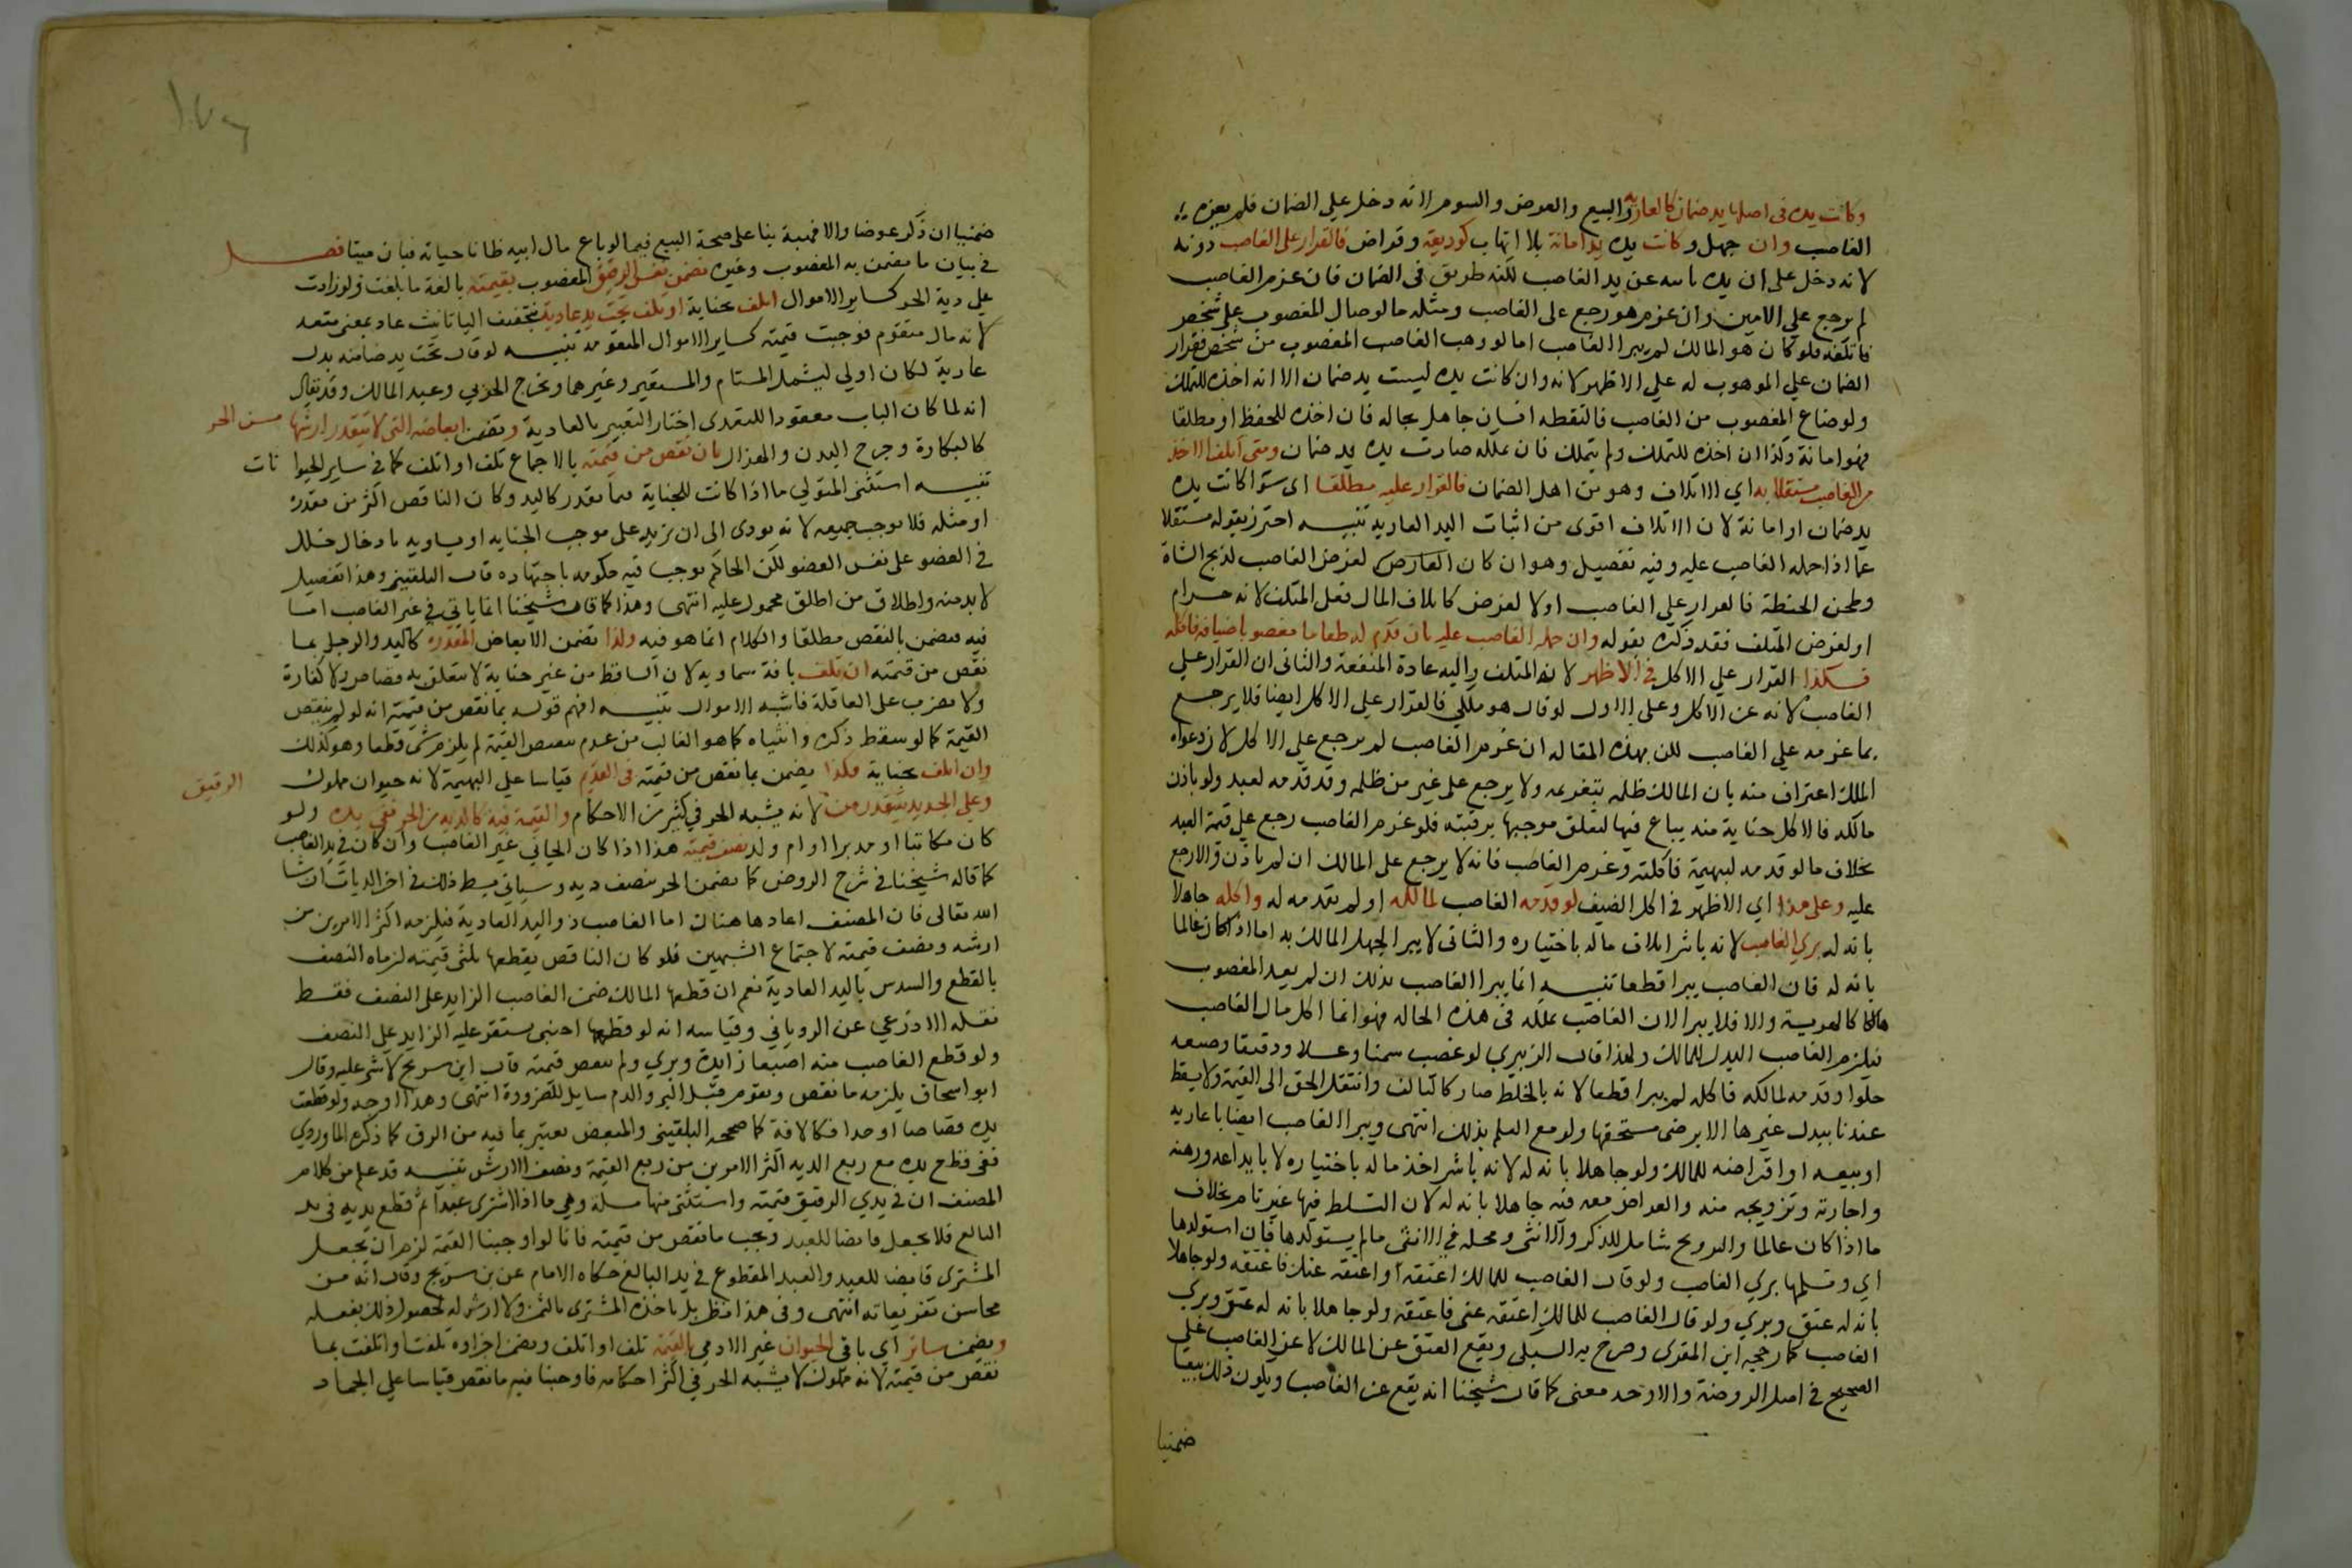 وكانت يده في اصلها يد ضمان كالعارية والبيع والقرض والسوم لانه دخل على الضمان فلم يغره
الغاصب وان جهل وكانت يده يد امانة بلا اتهاب كوديعة وقراض فالقرار على الغاصب دونه
لانه دخل على ان يده نائبه عن يد الغاصب لكنه طريق في الضمان فان غرم الغاصب
لم يرجع على الامين وان غرم هو رجع على الغاصب ومثله ما لو صال المغصوب على شخص
فاتلفه فلو كان هو المالك لم يبرا الغاصب اما لو وهب الغاصب المغصوب من شخص فقرار
الضمان على الموهوب له على الاظهر لانه وان كانت يده ليست يد ضمان الا انه اخذه للتملك
ولو ضاع المغصوب من الغاصب فالتقطه انسان جاهل بحاله فان اخذه للحفظ او مطلقا
فهو امانة وكذا ان اخذه للتملك ولم يتملك فان تملكه صارت يده يد ضمان ومتى اتلف الاخذ
من الغاصب مستقلا به اي الاتلاف وهو من اهل الضمان فالقرار عليه مطلقا اي سوا كانت يده
يد ضمان او امانة لان الاتلاف اقوى من اثبات اليد العادية تنبيه احترز بقوله مستقلا
عما اذا حمله الغاصب عليه وفيه تفصيل وهو ان كان العارض لغرض الغاصب لذبح الشاة
وطحن الحنطة فالقرار على الغاصب او لا لغرض كاتلاف المال فعلى المتلف لانه حرام
او لغرض المتلف فقد ذكره بقوله وان حمله الغاصب عليه بان قدم له طعاما مغصوبا ضيافة فاكله
فكذا القرار على الاكل في الاظهر لانه المتلف واليه عادة المنفعة والثاني ان القرار على
الغاصب لانه غر الاكل وعلى الاول لو قال هو ملكي فالقرار على الاكل ايضا فلا يرجع
بما غرمه على الغاصب لكن بهذه المقالة ان غرم الغاصب لم يرجع على الاكل لان دعواه
الملك اعتراف منه بان المالك ظلمه بتغريمه ولا يرجع على غير من ظلمه وقد قدمه لعبد ولو باذن
مالكه فالاكل جناية منه يباع فيها لتعلق موجبها برقبته فلو غرم الغاصب رجع على قيمة العبد
بخلاف ما لو قدمه لبهيمة فاكلته وغرم الغاصب فانه لا يرجع على المالك ان لم ياذن والا رجع
عليه وعلى هذا اي الاظهر في اكل الضيف لو قدمه الغاصب لمالكه او لم يقدمه له واكله جاهلا
بانه له بري الغاصب لانه باشر اتلاف ماله باختياره والثاني لا يبرا لجهل المالك به اما اذا كان عالما
بانه له فان الغاصب يبرا قطعا تنبيه انما يبرا الغاصب بذلك ان لم يعد المغصوب
هالكا كالهريسة والا فلا يبرا لان الغاصب تملكه في هذه الحالة فهو انما اكل مال الغاصب
فيلزم الغاصب البدل للمالك ولهذا قال الزبيري لو غصب سمنا وعسلا ودقيقا وصنعه
حلوا وقدمه لمالكه فاكله لم يبرا قطعا لانه بالخلط صار كالتالف وانتقل الحق الى القيمة ولا يسقط
عندنا ببدل غيرها الا برضى مستحقها ولو مع العلم بذلك انتهى ويبرا الغاصب ايضا باعارته
او بيعه او اقراضه للمالك ولو جاهلا بانه له لانه باشر اخذ ماله باختياره لا بايداعه ورهنه
واجارته وتزويجه منه والقراض معه فيه جاهلا بانه له لان التسلط فيها غير تام بخلاف
ما اذا كان عالما والتزويج شامل للذكر والانثى ومحله في الانثى ما لم يستولدها فان استولدها
اي وتسلمها بري الغاصب ولو قال الغاصب للمالك اعتقه او اعتقه عنك فاعتقه ولو جاهلا
بانه له عتق وبري ولو قال الغاصب للمالك اعتقه عني فاعتقه ولو جاهلا بانه له عتق وبري
الغاصب كما رجحه ابن المقري وصرح به السبكي ويقع العتق عن المالك لا عن الغاصب على
الصحيح في اصل الروضة والاوجه معنى كما قال شيخنا انه يقع عن الغاصب ويكون ذلك بيعا
ضمنيا
ضمنيا ان ذكر عوضا والا فهبة بنا على صحة البيع فيما لو باع مال ابيه ظانا حياته فبان ميتا فصل
في بيان ما يضمن به المغصوب وغيره تضمن نفس الرقيق المغصوب بقيمته بالغة ما بلغت ولو زادت
على دية الحر كساير الاموال اتلف بجناية او تلف تحت يد عادية بتخفيف اليا تانيث عاد بمعنى متعد
لانه مال متقوم فوجبت قيمته كساير الاموال المتقومة تنبيه لو قال تحت يد ضامنه بدل
عادية لكان اولى ليشمل المستام والمستعير وغيرهما ويخرج الحربي وعبد المالك وقد يقال
انه لما كان الباب معقودا للتعدي اختار التعبير بالعادية وتضمن ابعاضه التي لا يتقدر ارشها من الحر
كالبكارة وجرح البدن والهزال بان نقص من قيمته بالاجماع تلف او اتلف كما في ساير الحيوانات
تنبيه استثنى المتولي ما اذا كانت للجناية فيما يقدر كاليد وكان الناقص اكثر من مقدره
او مثله فلا يوجب جميعه لانه يودي الى ان نزيد على موجب الجنايه او يساويه بادخال خلل
في العضو على نفس العضو لكن الحاكم يوجب فيه حكومه باجتهاده قال البلقيني وهذا تفصيل
لا بد منه واطلاق من اطلق محمول عليه انتهى وهذا كما قال شيخنا انما ياتي في غير الغاصب اما
فيه فيضمن بالنقص مطلقا والكلام انما هو فيه ولذا تضمن الابعاض المقدره كاليد والرجل بما
نقص من قيمته ان تلف بافة سماويه لان الساقط من غير جناية لا يتعلق به قصاص ولا كفارة
ولا يضرب على العاقلة فاشبه الاموال تنبيه افهم قوله بما نقص من قيمته انه لو لم ينقص
القيمة كما لو سقط ذكره وانثياه كما هو الغالب من عدم نقص القيمة لم يلزم شي قطعا وهو كذلك
وان اتلف بجناية فكذا يضمن بما نقص من قيمته في القديم قياسا على البهيمة لانه حيوان مملوك
وعلى الجديد يتقدر من الرقيق لانه يشبه الحر في كثير من الاحكام والقيمة فيه كالدية من الحر ففي يده ولو
كان مكاتبا او مدبرا او ام ولد نصف قيمته هذا اذا كان الجاني غير الغاصب وان كان في يد الغاصب
كما قاله شيخنا في شرح الروض كما يضمن الحر بنصف ديه وسياتي بسط ذلك في اخر الديات ان شا
الله تعالى فان المصنف اعادها هناك اما الغاصب ذو اليد العادية فيلزمه اكثر الامرين من
ارشه ونصف قيمته لاجتماع الشبهين فلو كان الناقص بقطعها ثلثي قيمته لزماه النصف
بالقطع والسدس باليد العادية نعم ان قطعها المالك ضمن الغاصب الزايد على النصف فقط
نقله الاذرعي عن الروياني وقياسه انه لو قطعها اجنبي يستقر عليه الزايد على النصف
ولو قطع الغاصب منه اصبعا زايدة وبري ولم ينقص قيمته قال ابن سريج لا شي عليه وقال
ابو اسحاق يلزمه ما نقص ويقوم قبل البر والدم سايل للضرورة انتهى وهذا اوجه ولو قطعت
يده قصاصا او حدا فكالافة كما صححه البلقيني والمبعض يعتبر بما فيه من الرق كما ذكره الماوردي
ففي قطع يده مع ربع الديه اكثر الامرين من ربع القيمة ونصف الارش تنبيه قد علم من كلام
المصنف ان في يدي الرقيق قيمته واستثنى منها مسلة وهي ما اذا اشترى عبدا ثم قطع يديه في يد
البايع فلا يجعل قابضا للعبد ويجب ما نقص من قيمته فانا لو اوجبنا القيمة لزم ان يجعل
المشتري قابضا للعبد والعبد المقطوع في يد البايع حكاه الامام عن بن سريج وقال انه من
محاسن تفريعاته انتهى وفي هذا نظر بل ياخذه المشتري بالثمن ولا ارش له لحصول ذلك بفعله
ويضمن ساير اي باقي الحيوان غير الادمي بالقيمة تلف او اتلف ويضمن اجزاوه تلفت او اتلفت بما
نقص من قيمته لانه مملوك لا يشبه الحر في اكثر احكامه فاوجبنا فيه ما نقص قياسا على الجماد